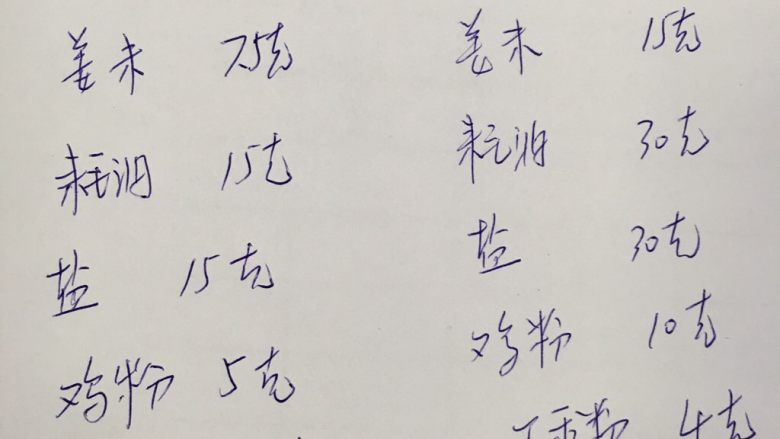 姜末 7.5克
耗油 15克
盐 15克
鸡粉 5克
姜末 15克
耗油 30克
盐 30克
鸡粉 10克
粉 4克